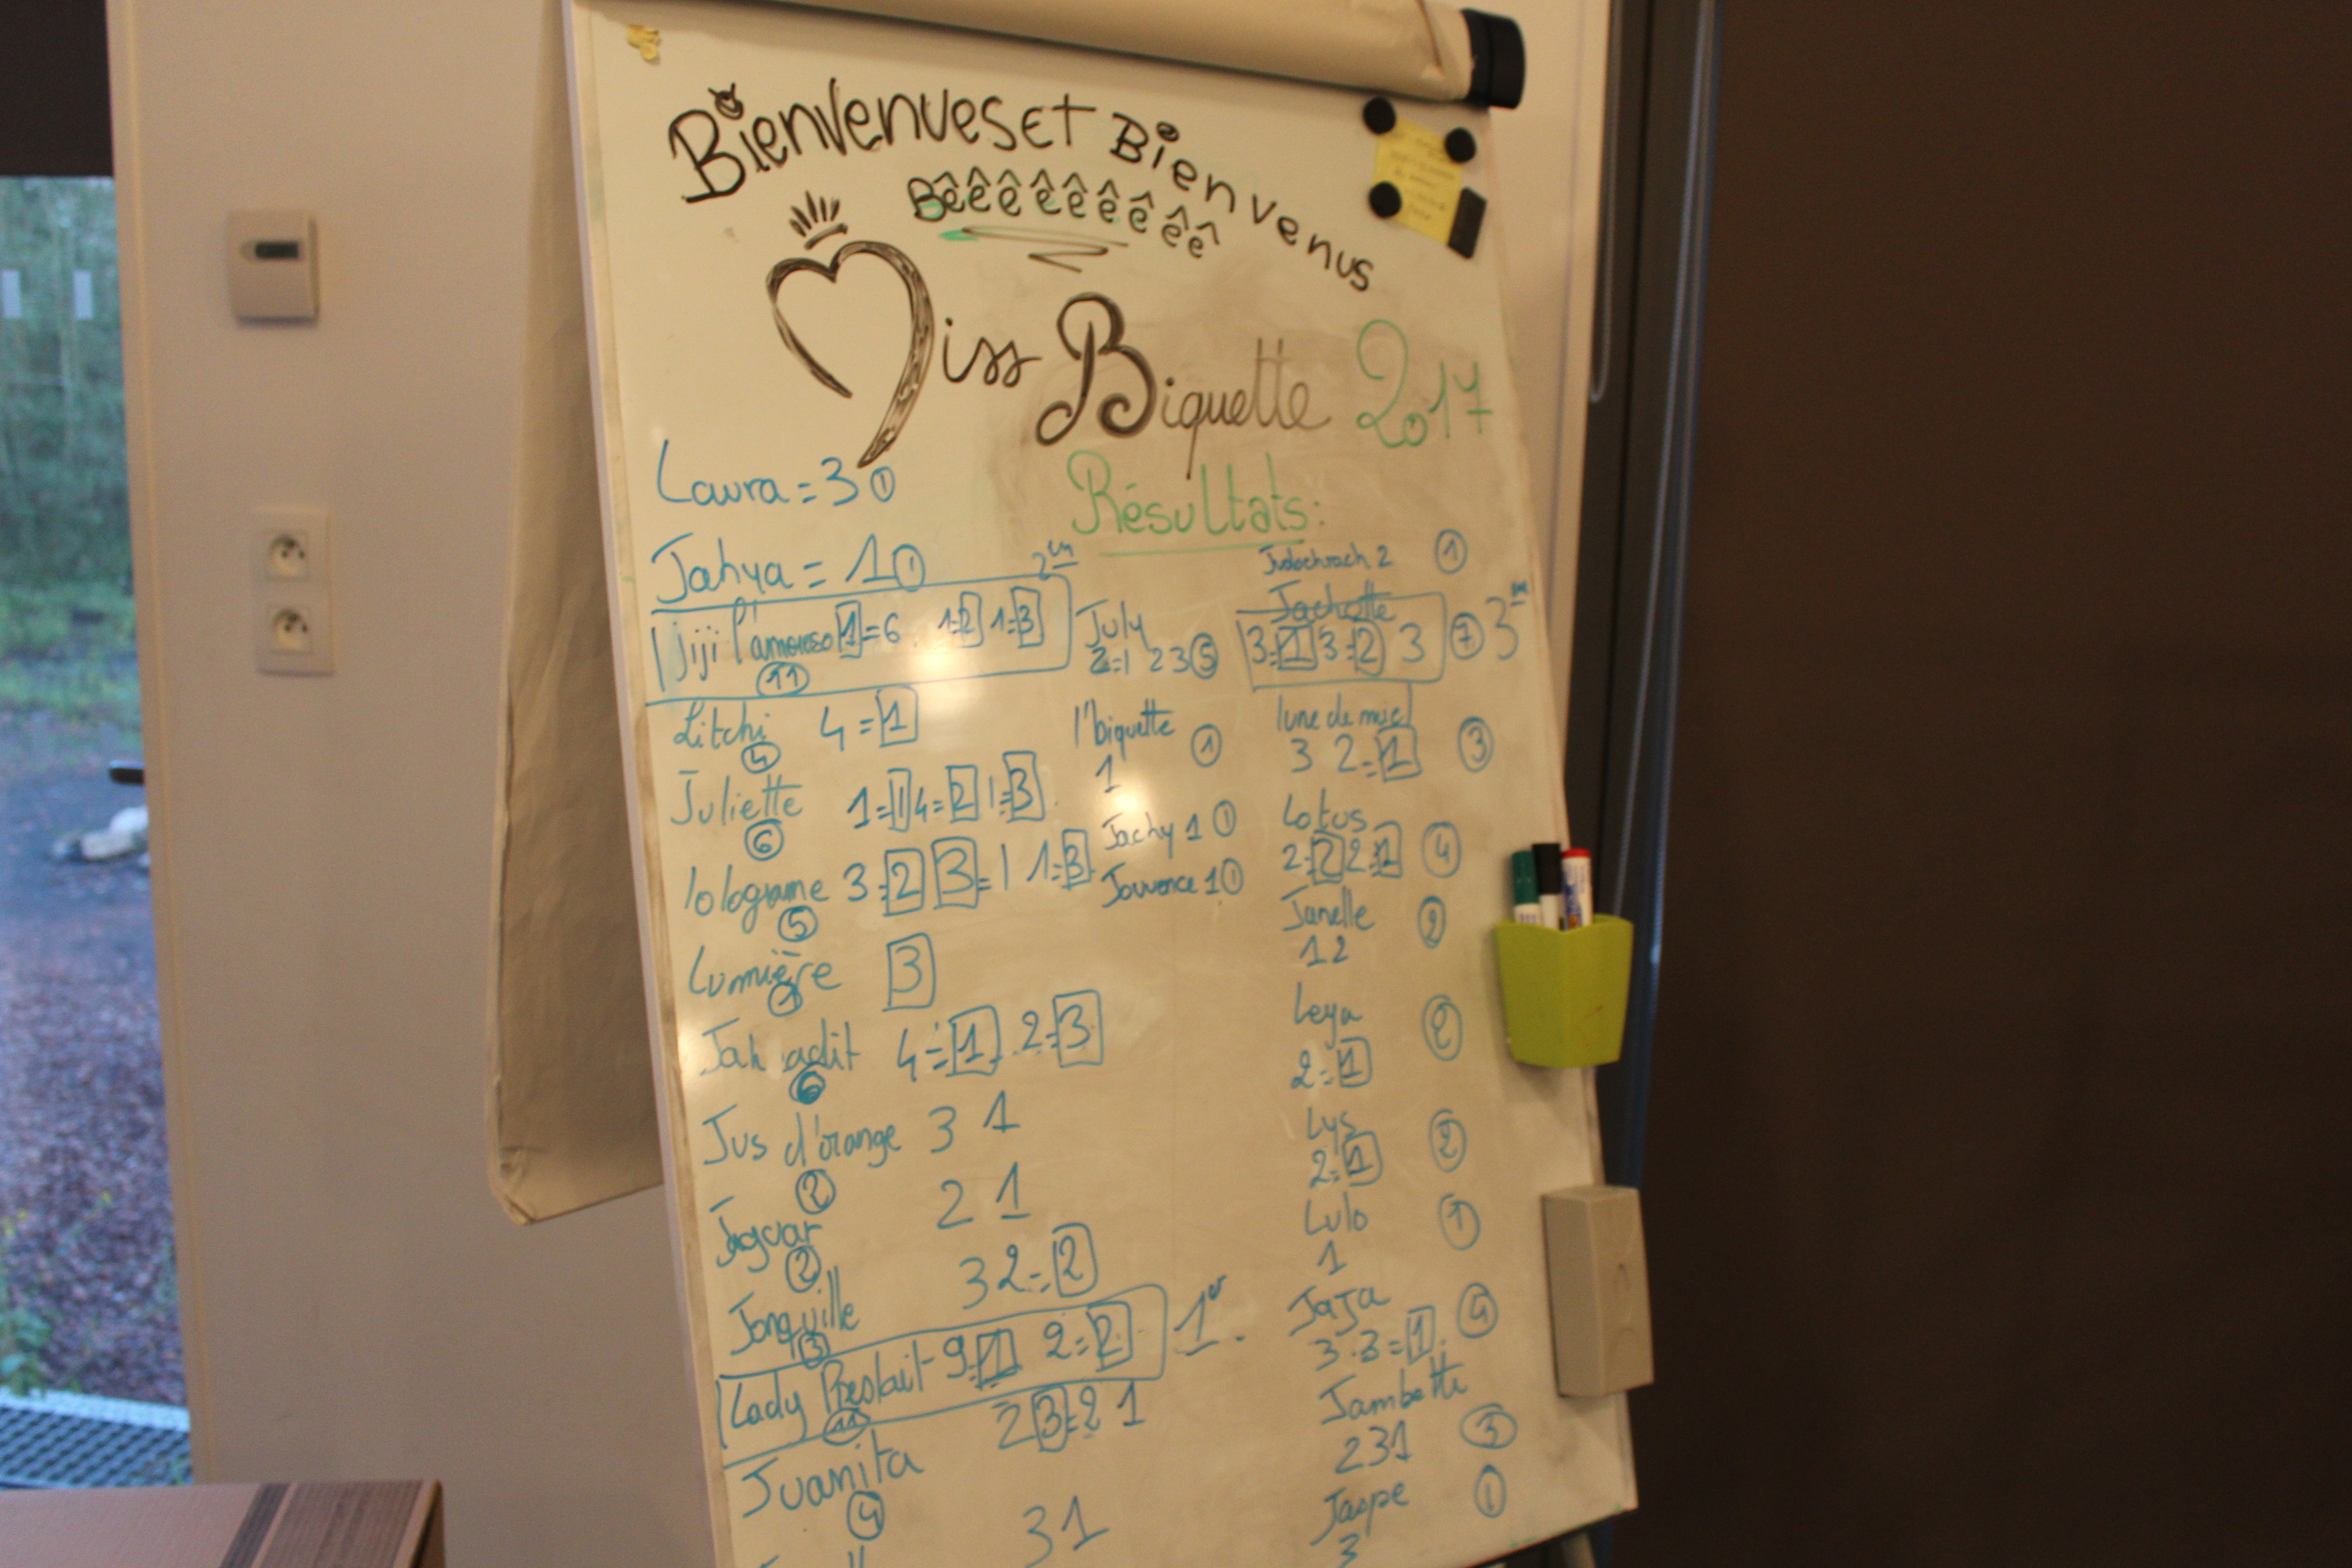 Bienvenues et Bienvenus
Bêêêêêêêêê
Miss Biquette 2017
Résultats:
Laura = 3 ①
Jahya = 1 ①
2
Jiji l'amoroso 1 = 6 1=2 1=3
11
Litchi 4 = 1
4
Juliette 1=1 4=2 1=3
6
lolograme 3=2 3=1 1=3
5
Lumière 3
1
Jah adit 4=1 2=3
6
Jus d'orange 3 1
2
Jaguar 2 1
2
Jonquille 3 2=2
3
Lady Preslait 9=1 2=2 1er
11
Juanita 2 3=2 1
4
3 1
July
2=1 2 3 5
l'biquette
1 ①
Jachy 1 ①
Jouvence 1 ①
2 ①
Jachotte
3=1 3=2 3 7 3
lune de miel
3 2=1 3
Lotus
2=2 2=1 4
Janelle
1 2 2
Leya
2=1 2
Lys
2=1 2
Lulo
1 1
JaJa
3 3=1 4
Jambette
2 3 1 3
Jaspe
3 1